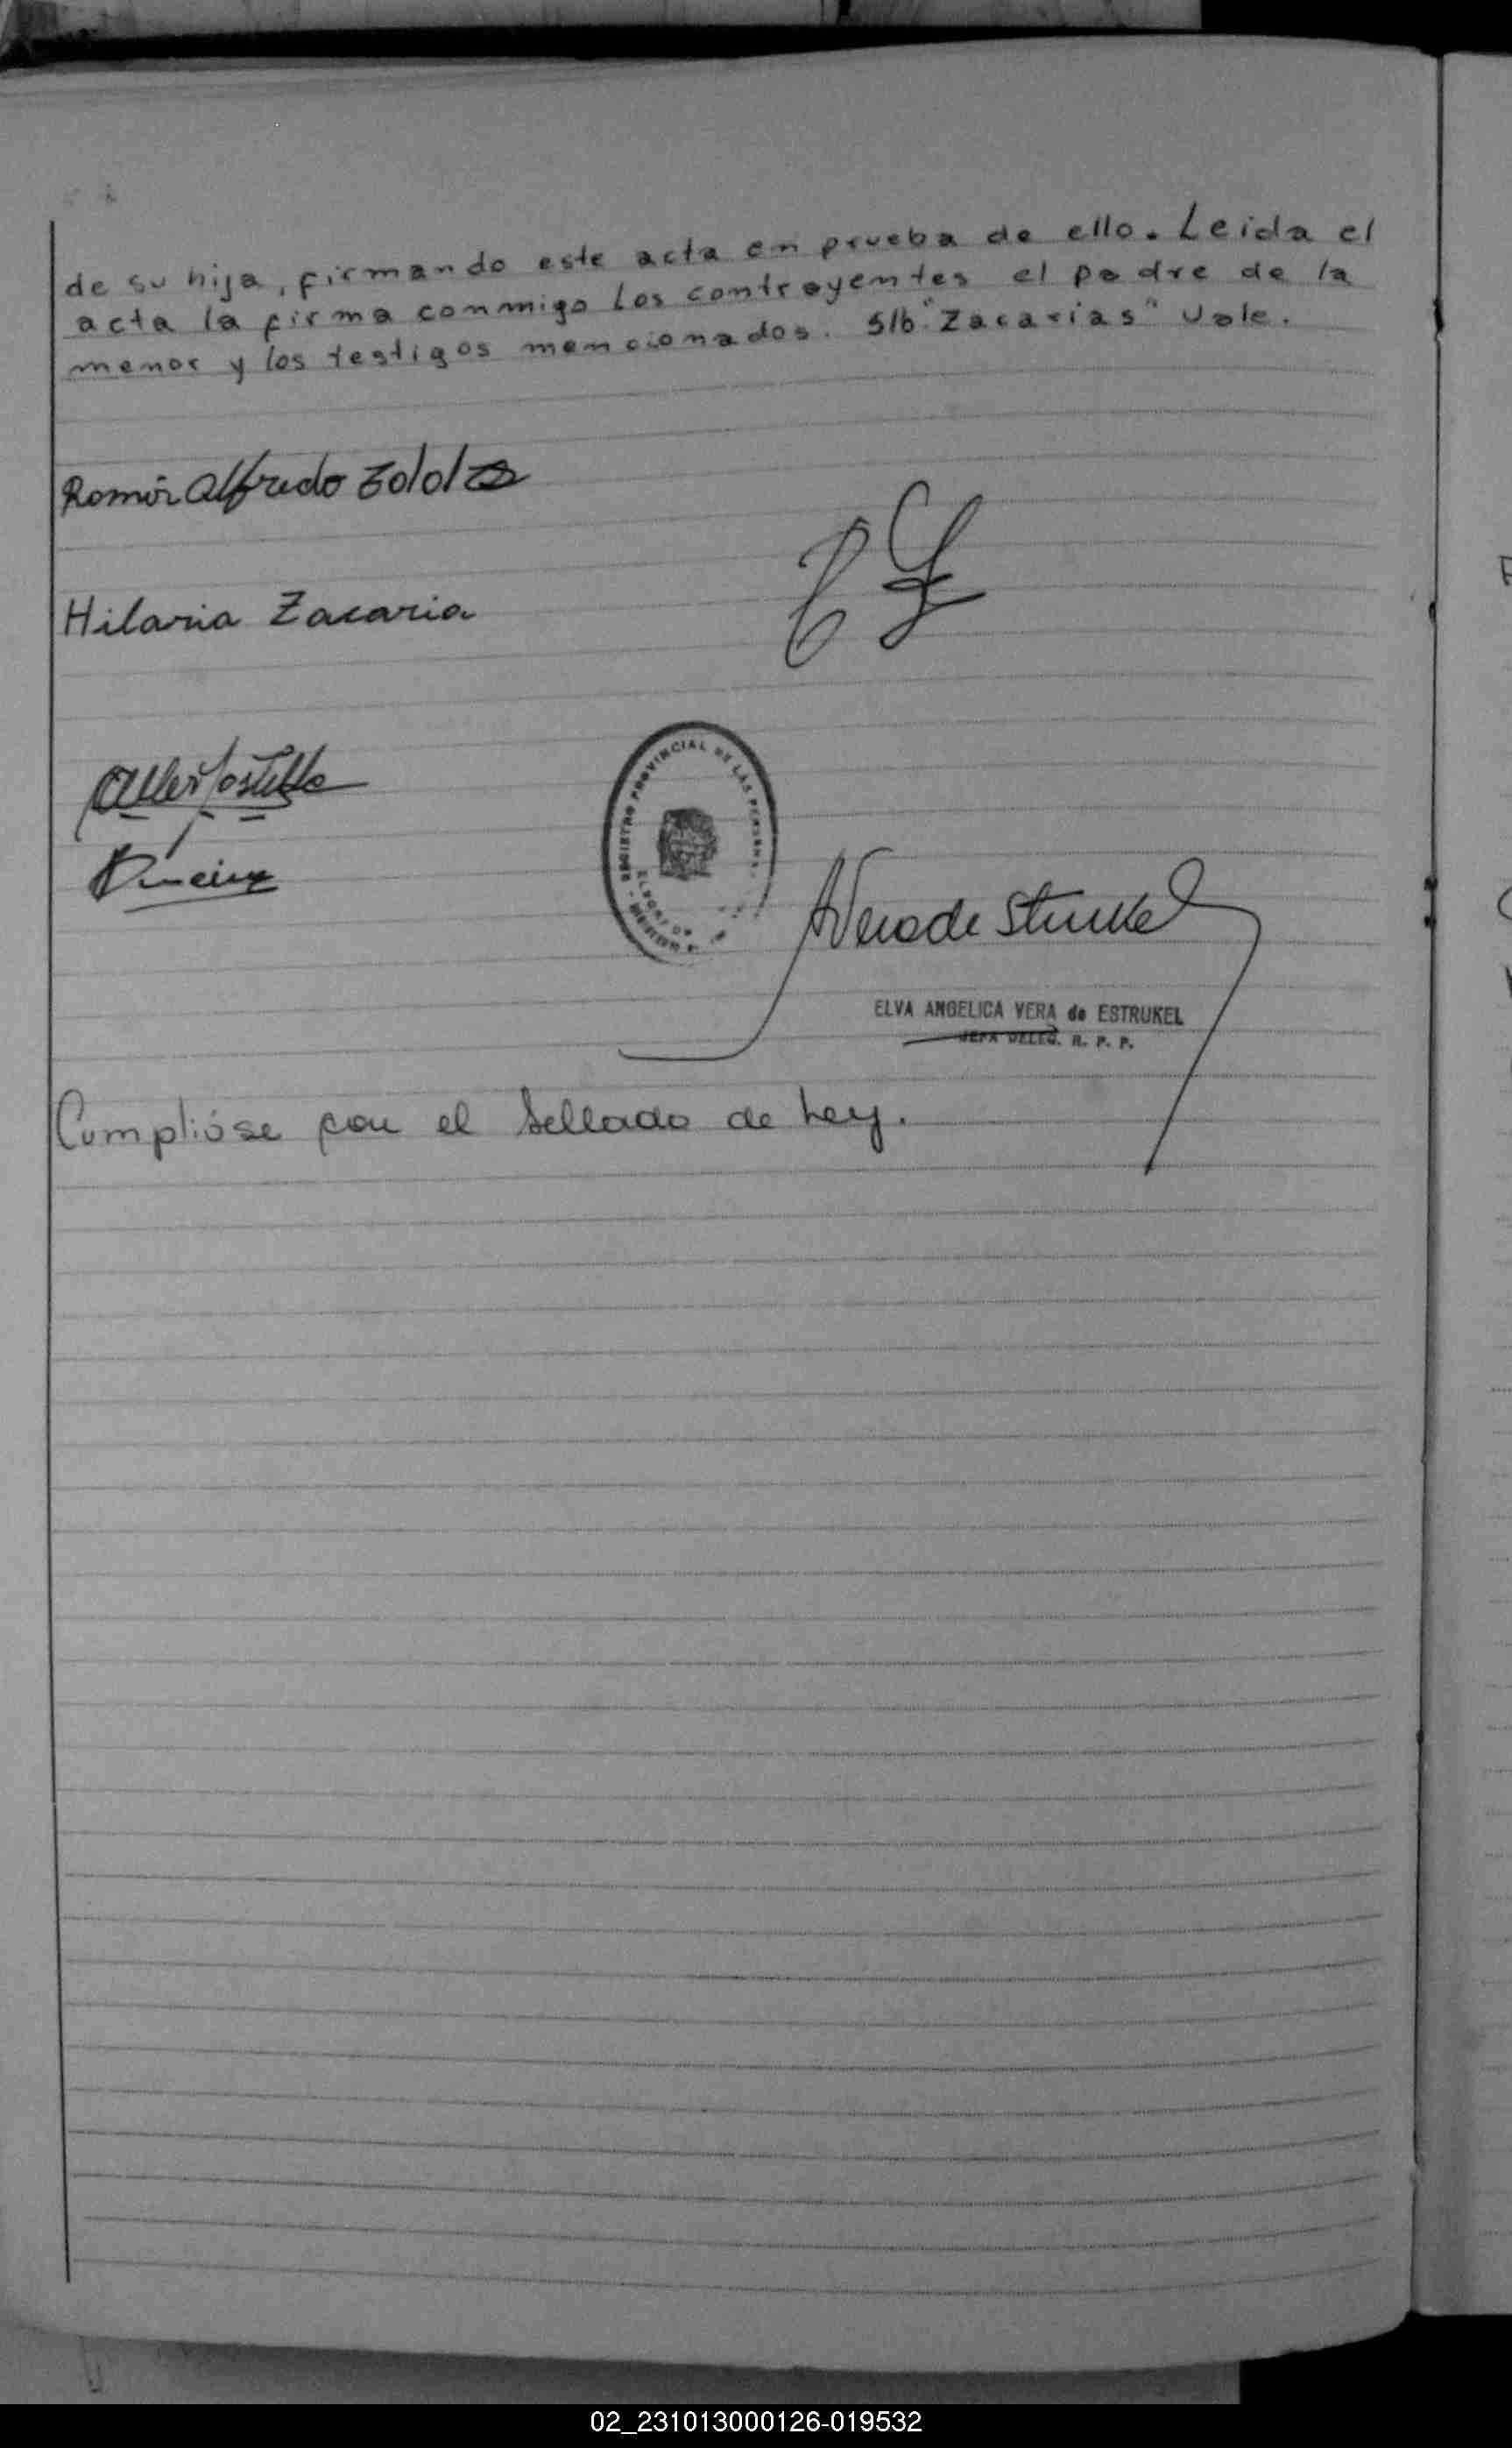 de su hija, firmando este acta en prueba de ello. Leida el
acta la firma conmigo los contrayentes el padre de la
menor y los testigos mencionados. S/b "Zacarias" Vale.
Alfredo
Hilaria Zacaria
REGISTRO PROVINCIAL DE LAS PERSONAS
ELVA ANGELICA VERA de ESTRUKEL
JEFA DELEG. R. P. P.
Cumplióse con el Sellado de Ley.
02_231013000126-019532